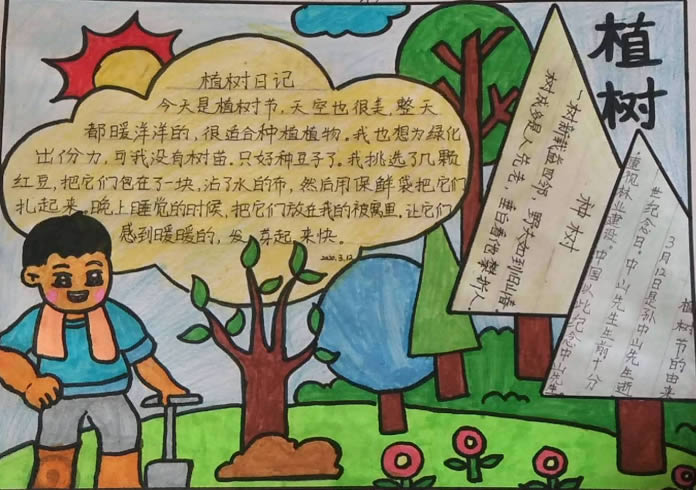 植树
植树日记
今天是植树节，天空也很美，整天
都暖洋洋的，很适合种植植物。我也想为绿化
出份力，可我没有树苗。只好种豆子了。我挑选了几颗
红豆，把它们包在了一块，沾了水的布，然后用保鲜袋把它们
扎起来。晚上睡觉的时候，把它们放在我的被窝里，让它们
感到暖暖的，发起来快。
2020.3.12
种树
一树新栽益四邻，野夫如到旧山春。
树成多是人先老，垂白看他攀折人。
植树节的由来
3月12日是孙中山先生逝
世纪念日。中山先生生前十分
重视林业建设。中国以此纪念中山先生